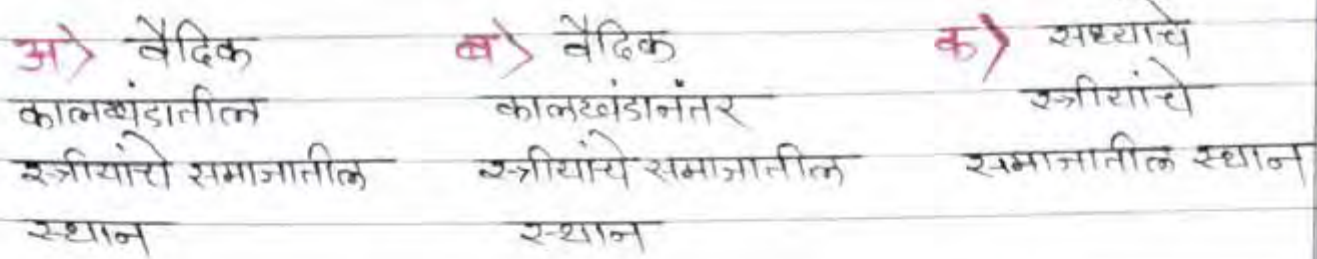 अ) वैदिक
कालखंडातील
स्त्रीयांचे समाजातील
स्थान
ब) वैदिक
कालखंडानंतर
स्त्रीयांचे समाजातील
स्थान
क) सध्याचे
स्त्रीयांचे
समाजातील स्थान